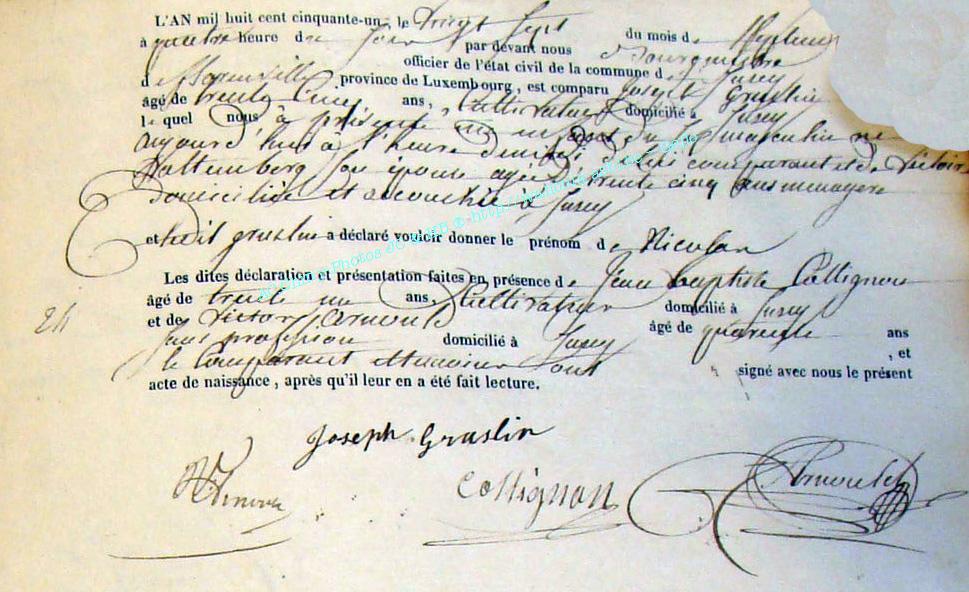 L'AN mil huit cent cinquante-un, le Vingt Sept du mois de
à quatre heure du Soir par devant nous Bourgmestre
officier de l'état civil de la commune de Jusey
d province de Luxembourg, est comparu Joseph Graslin
âgé de trente Cinq ans, Cultivateur domicilié à Jusey
lequel nous à présenté un enfant du Sexe masculin né
aujourd'hui à l'heure de midi de lui comparant et de Victoire
son épouse agée de trente cinq ans menagère
domiciliée et accouchée à Jusey
et Graslin a déclaré vouloir donner le prénom de Nicolas
Les dites déclaration et présentation faites en présence de Jean Baptiste Collignon
âgé de trente un ans, Cultivateur domicilié à Jusey
24
et de Victor Arnould âgé de quarante ans
sans profession domicilié à Jusey , et
le Comparant et témoins sont signé avec nous le présent
acte de naissance, après qu'il leur en a été fait lecture.
Joseph Graslin
Collignon